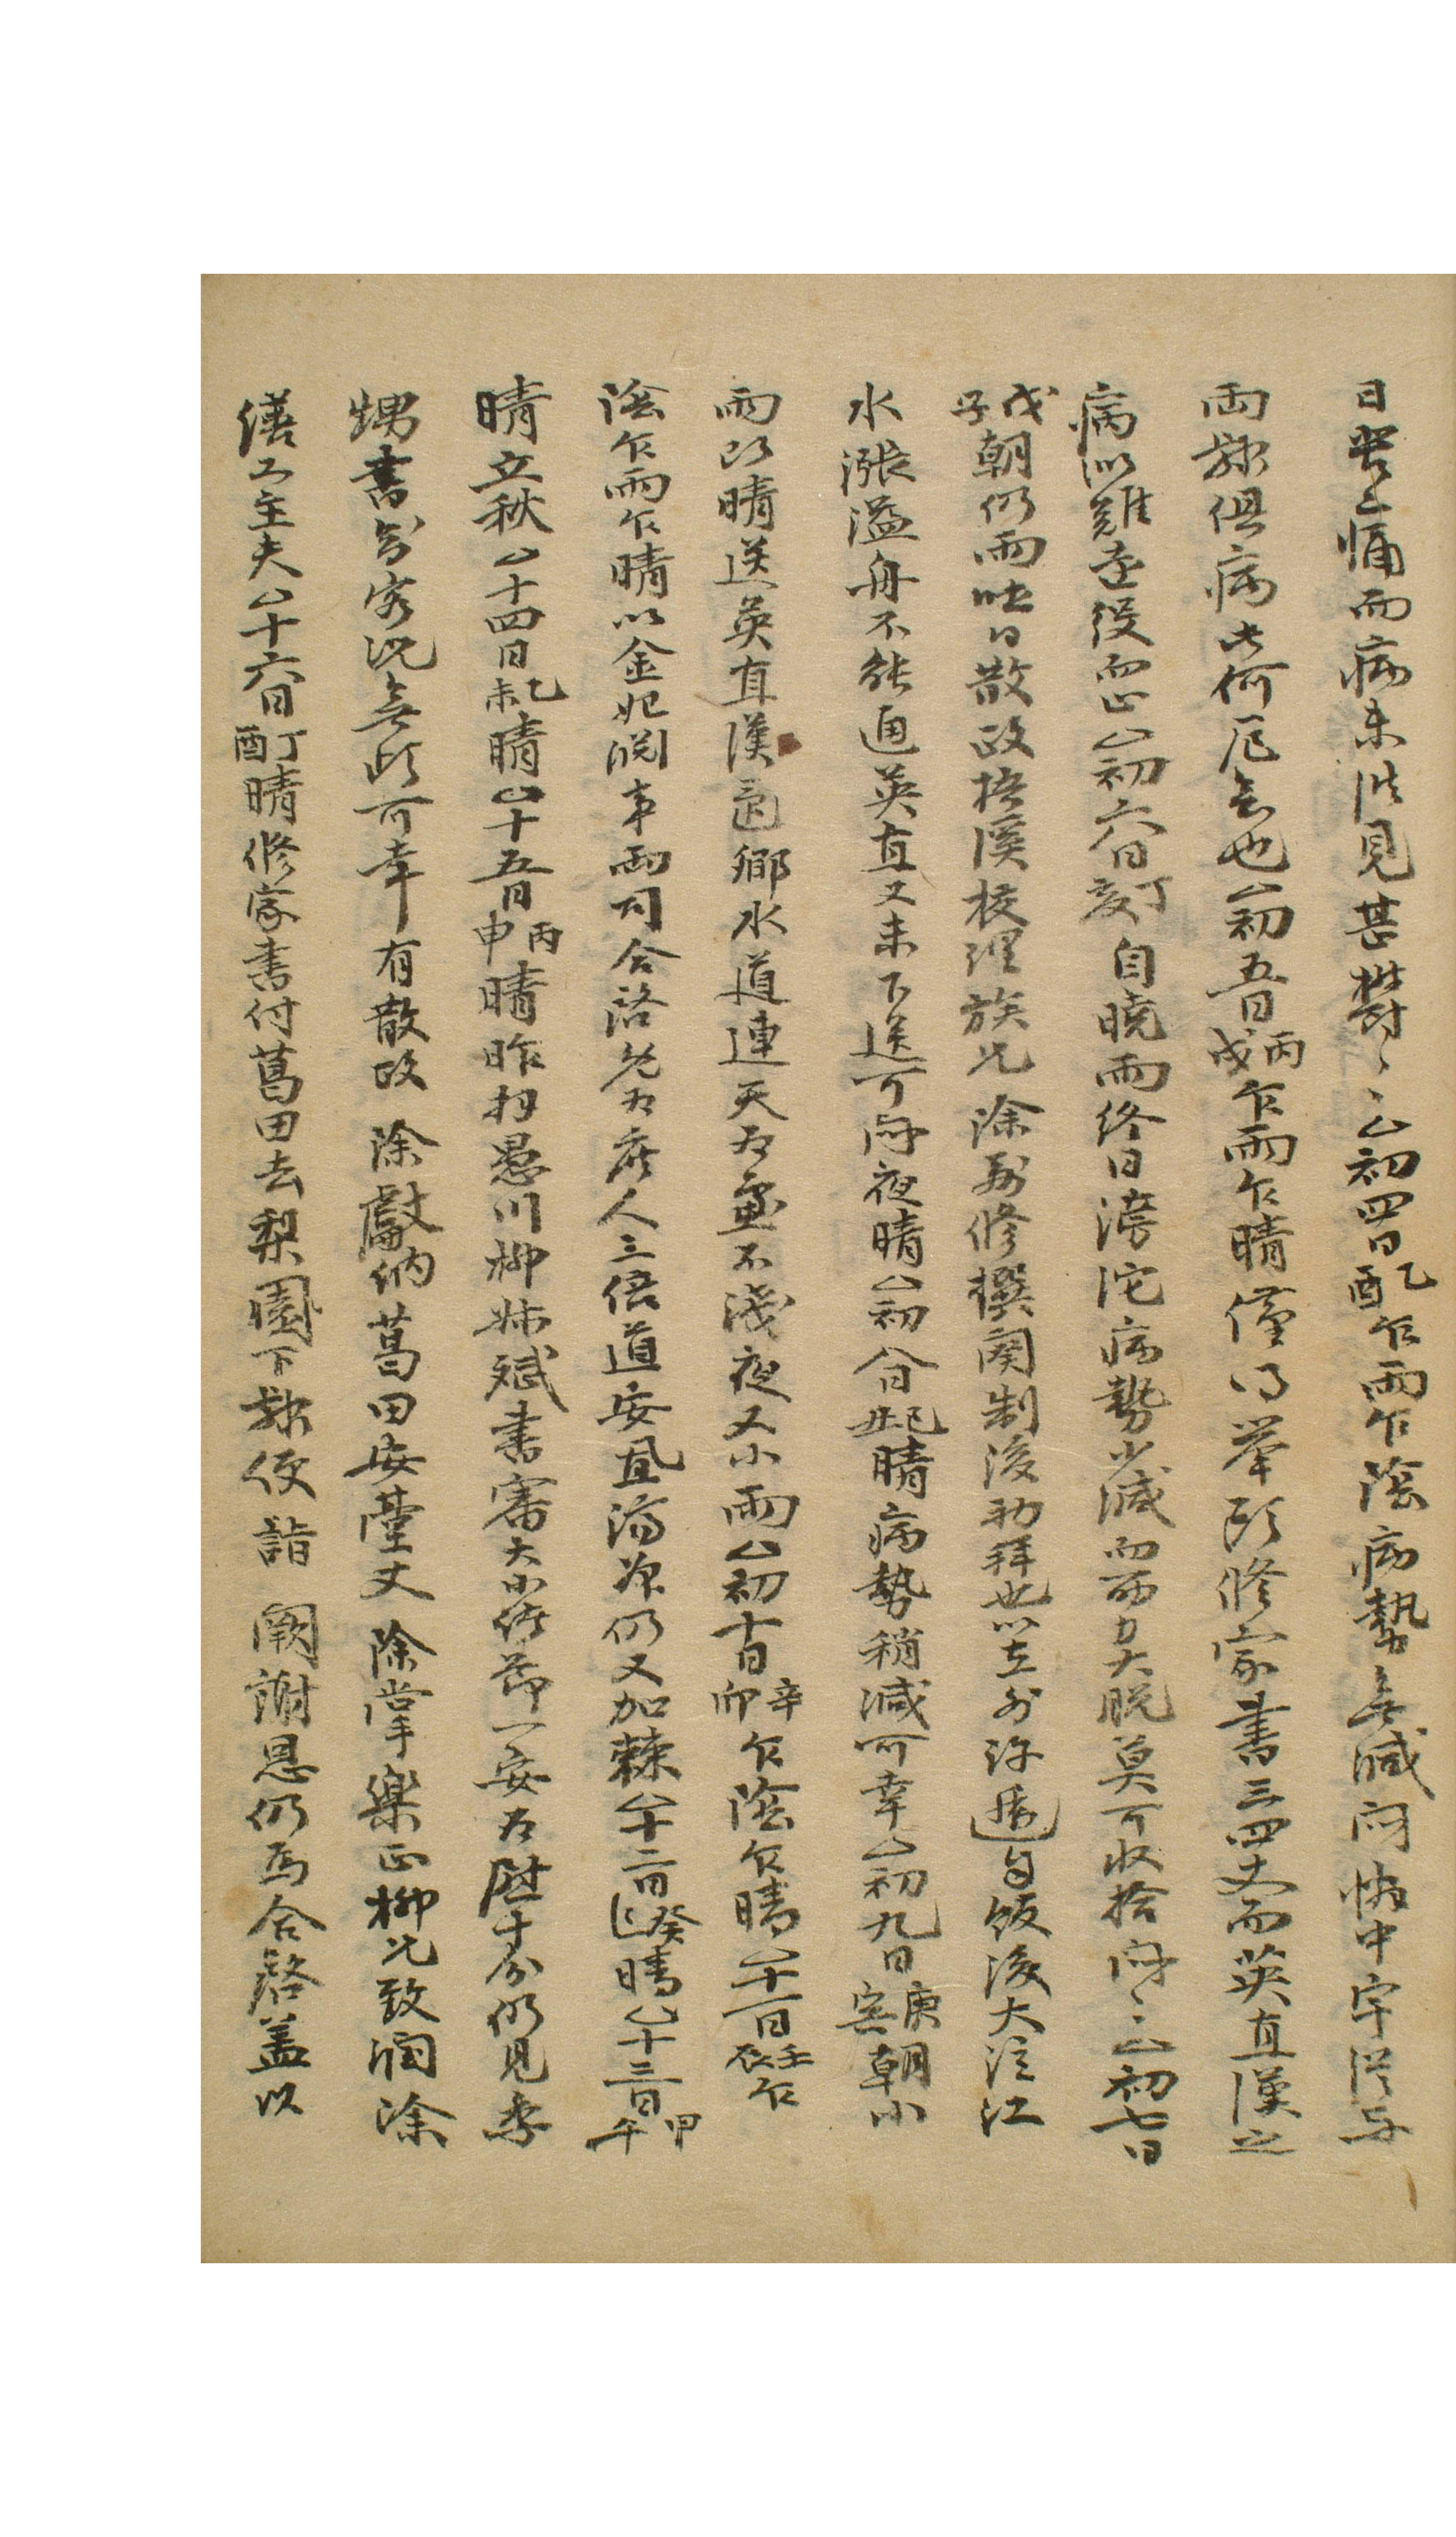 日昨之痛而病未快見甚鬱〻〻△初四日乙酉乍雨乍陰病勢無減悶惱中宰從与
両隷俱病此何厄會也△初五日丙戌乍雨乍晴僅得擧頭修家書三四丈而英直漢之
病似難遠役留止△初六日丁亥自曉雨終日滂沱病勢少減而西力大脫莫可收拾悶〻△初七日
戊子朝仍雨昨日散政梧溪校理族兄除拜修撰闋制後初拜也以在外許遞自飯後大注江
水漲溢舟不能通英直又未下送可悶夜晴△初八日己丑晴病勢稍減可幸△初九日庚寅朝小
雨以晴送英直漢還鄕水道連天爲慮不淺夜又小雨△初十日辛卯乍陰乍晴△十一日壬辰乍
陰乍雨乍晴以金妃淵事両司合啓免爲庶人三倍道安置濟州仍又加棘△十二日癸巳晴△十三日甲午
晴立秋△十四日乙未晴△十五日丙申晴昨扫愚川柳姊斌書審大小侍節一安爲慰十分仍見李
甥書幷審客況無頉可幸有散政除獻納葛田安臺丈除掌樂正柳兄致潤除
繕工主夫△十六日丁酉晴修家書付葛田去梨園下隷便詣闕謝恩仍爲合啓盖以